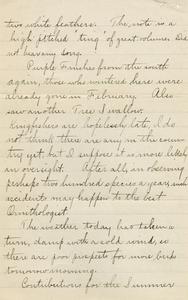 two white feathers. The note is a
high pitched 'ting' of great volume. Did
not hear any song.
Purple Finches from the south
again, those who wintered here were
already gone in February. Also
saw another Tree Swallow.
Kingfishers are hopelessly late, I do
not think there are any in the coun-
try yet, but I suppose it is more likely
an oversight. After all, in observing
perhaps two hundred species a year, such
accidents may happen to the best
Ornithologist.
The weather today has taken a
turn, damp with a cold wind, so
there are poor prospects for more birds
tomorrow morning.
Contributions for the Summer